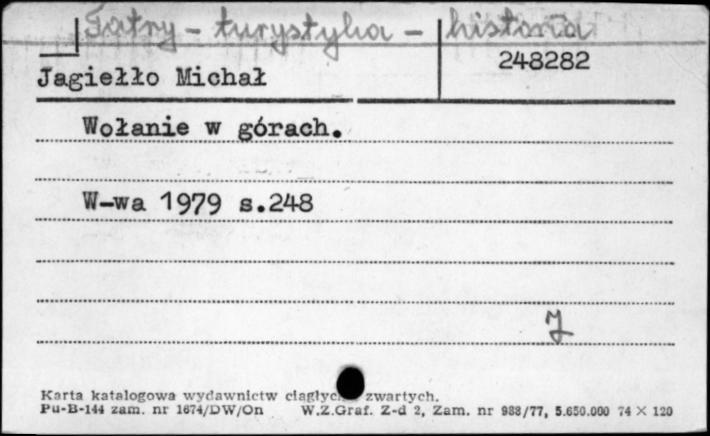 Tatry - turystyka - historia
248282
Jagiełło Michał
Wołanie w górach.
W-wa 1979 s.248
J
Karta katalogowa wydawnictw ciągłych zwartych.
Pu-B-144 zam. nr 1674/DW/On W.Z.Graf. Z-d 2, Zam. nr 988/77, 5.650.000 74 × 120